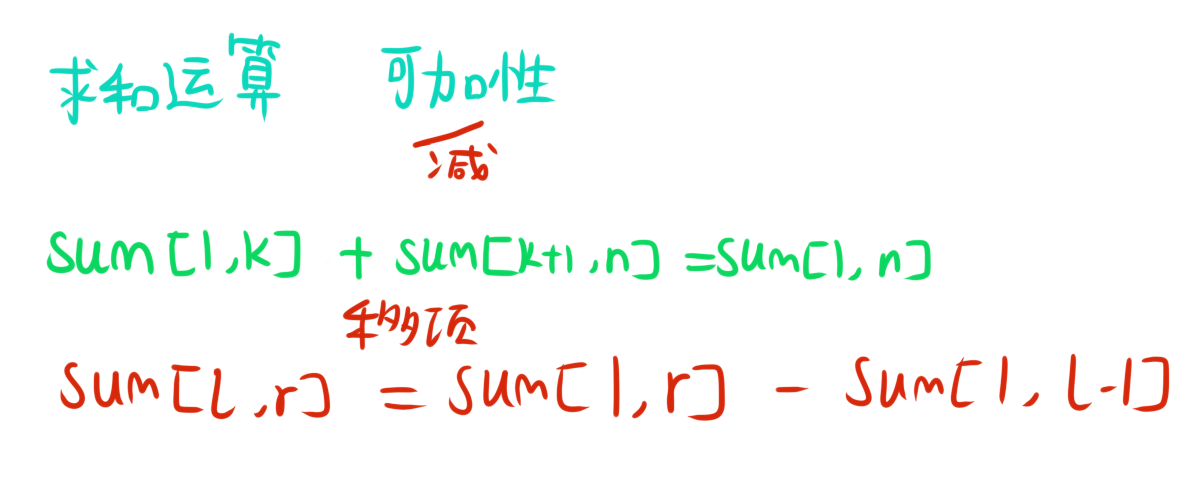 求和运算 可加性
减
sum[1,k] + sum[k+1,n]=sum[1,n]
移项
sum[l,r] = sum[1,r] - sum[1,l-1]